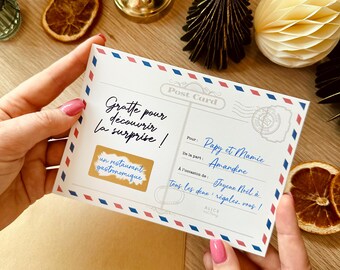 Post Card
Gratte pour
découvrir
la surprise !
un restaurant
gastronomique
Pour : Papy et Mamie
De la part : Amandine
À l'occasion de : Joyeux Noël à
tous les deux - régalez vous !